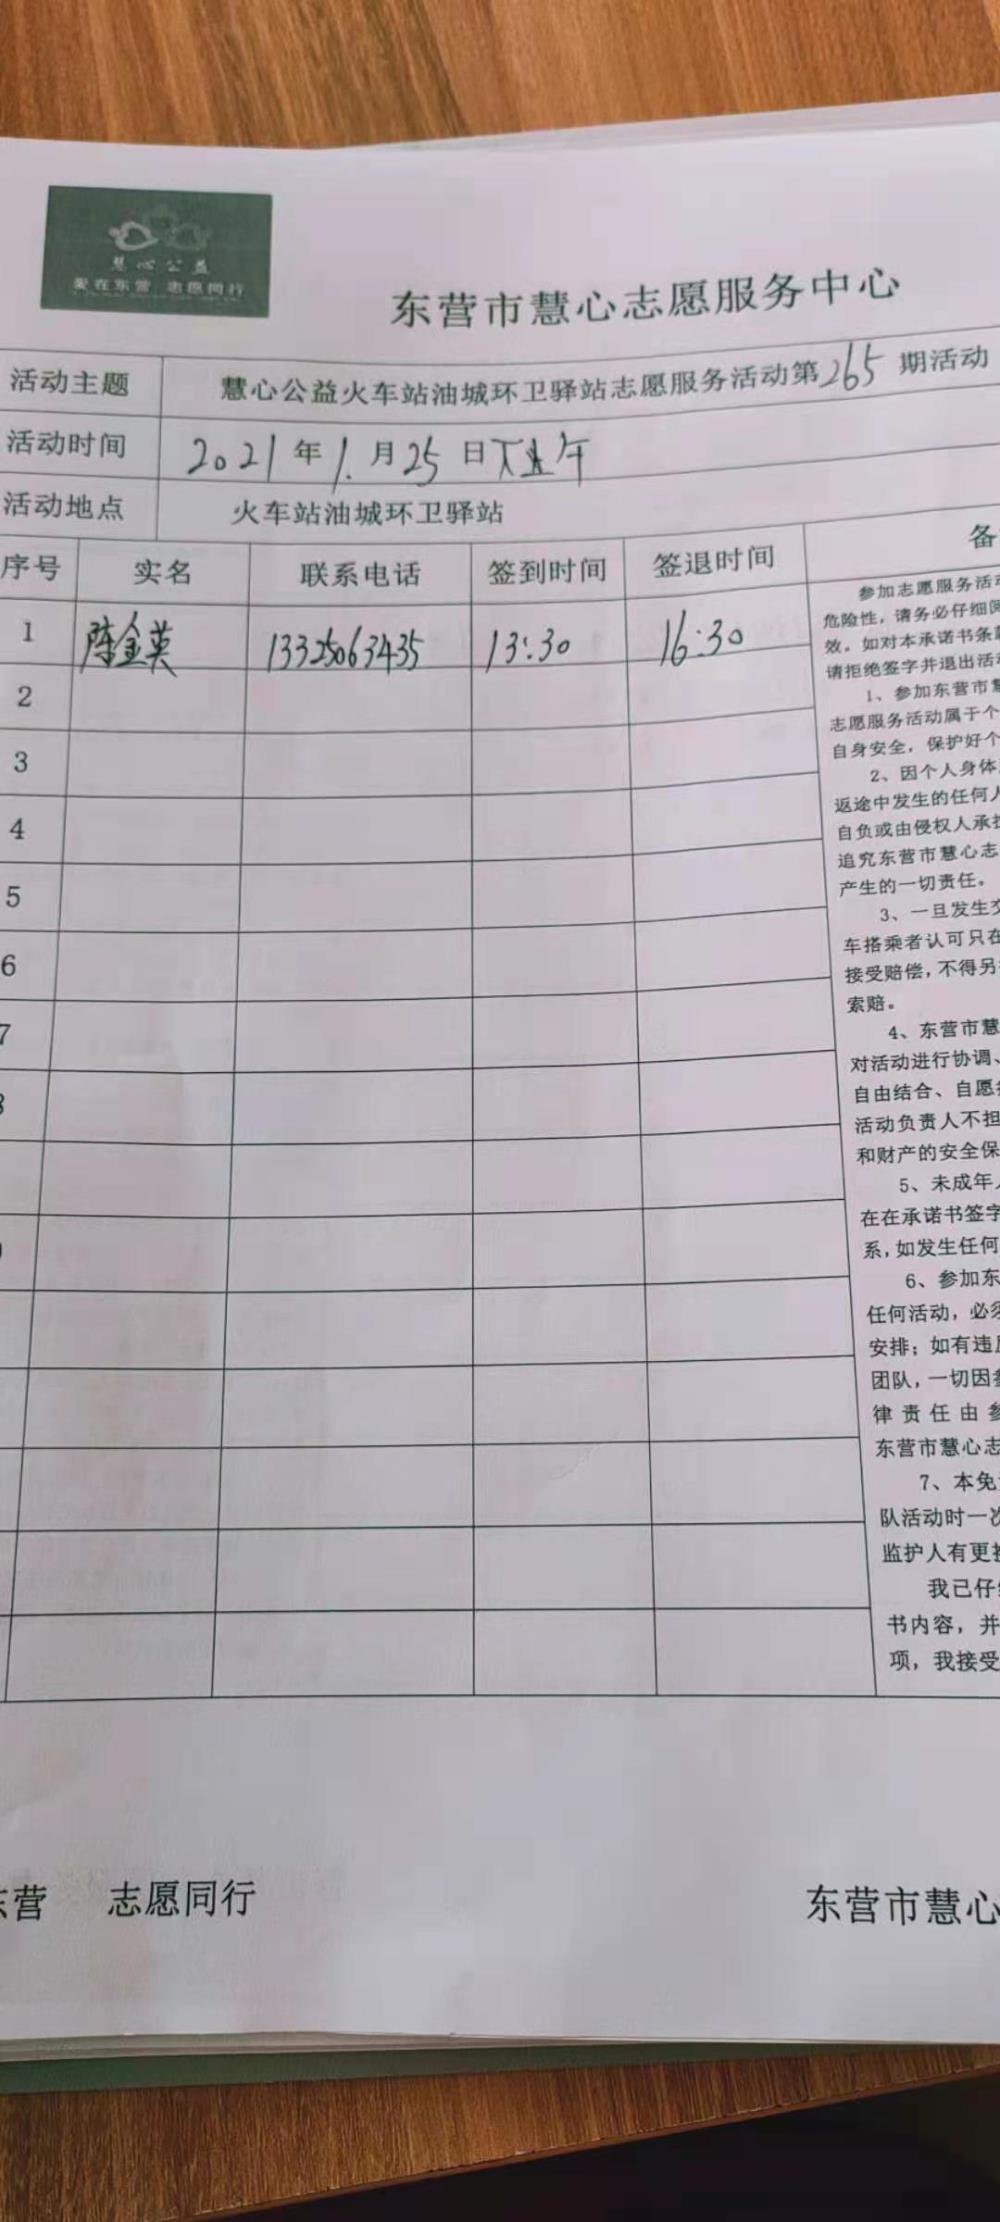 慧心公益
爱在东营 志愿同行
东营市慧心志愿服务中心
活动主题 慧心公益火车站油城环卫驿站志愿服务活动第265期活动
活动时间 2021年1.月25日下午
活动地点 火车站油城环卫驿站
序号 实名 联系电话 签到时间 签退时间 备
1 陈金英 13325063435 13:30 16:30
2
3
4
5
6
7
8
参加志愿服务活动
危险性，请务必仔细阅
效。如对本承诺书条款
请拒绝签字并退出活动
1、参加东营市慧
志愿服务活动属于个
自身安全，保护好个
2、因个人身体
返途中发生的任何人
自负或由侵权人承担
追究东营市慧心志
产生的一切责任。
3、一旦发生交
车搭乘者认可只在
接受赔偿，不得另
索赔。
4、东营市慧
对活动进行协调、
自由结合、自愿
活动负责人不担
和财产的安全保
5、未成年人
在在承诺书签字
系，如发生任何
6、参加东
任何活动，必须
安排；如有违反
团队，一切因参
律责任由参
东营市慧心志
7、本免
队活动时一次
监护人有更
我已仔细
书内容，并
项，我接受
东营 志愿同行
东营市慧心